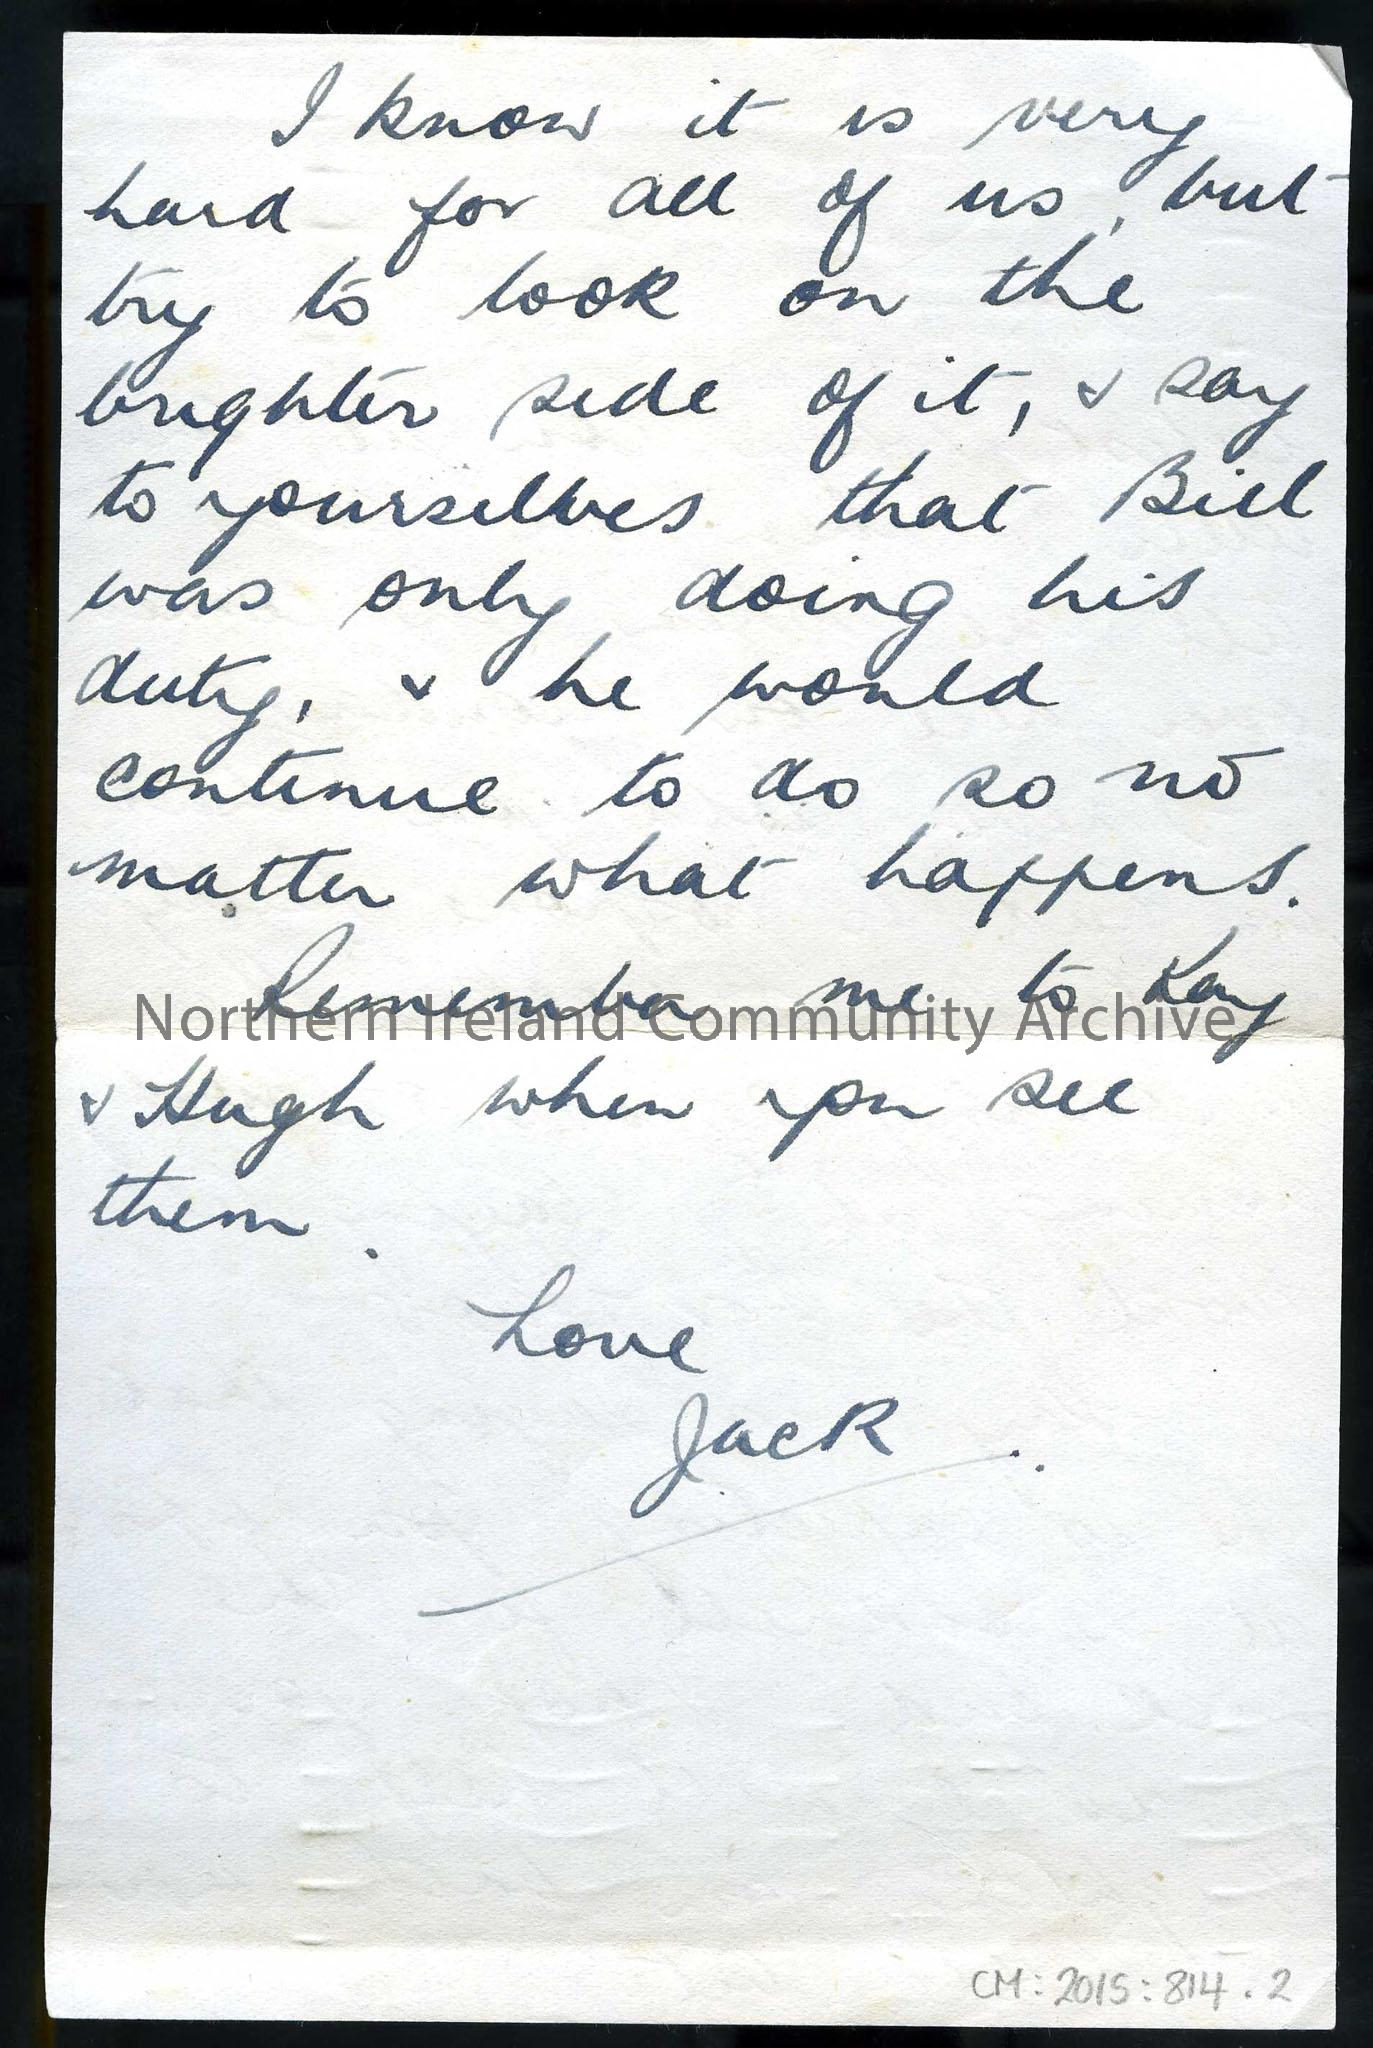 I know it is very
hard for all of us, but
try to look on the
brighter side of it, & say
to yourselves that Bill
was only doing his
duty, & he would
continue to do so no
matter what happens.
Remember me to Kay
Northern Ireland Community Archive
& Hugh when you see
them.
Love
Jack
CM:2015:814.2